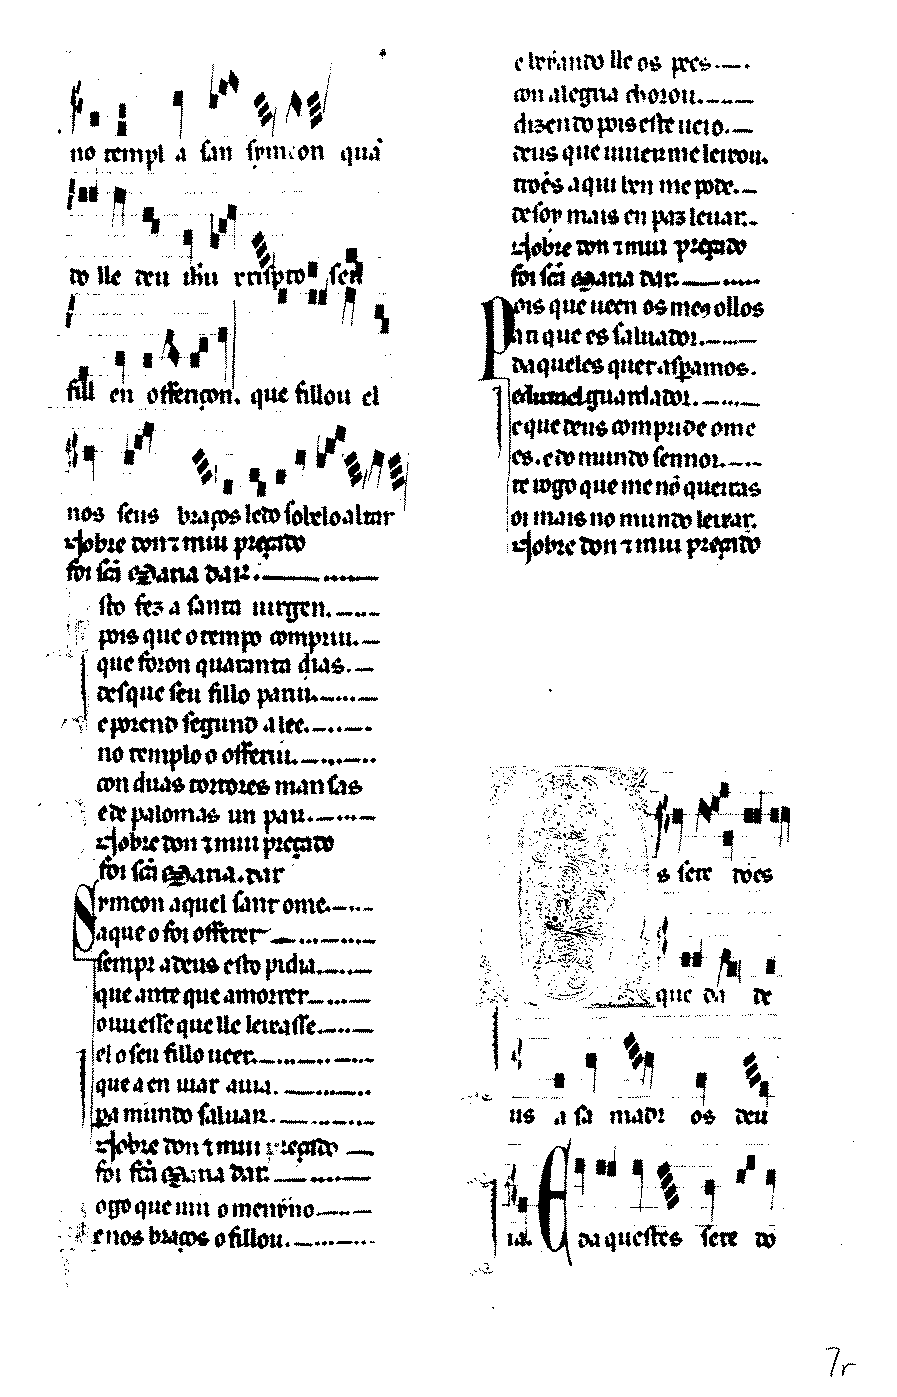 no templ a san symeon quã
do lle deu ih̃u cristo seu
fill en offerçon. que fillou el
nos seus braços ledo sobelo altar
Nobre don ⁊ mui preçado
foi sc̃a Maria dar.
sto fez a santa uirgen.
pois que o tempo compriu.
que foron quaranta dias.
desque seu fillo pariu.
e porend segund a lee.
no templo o offeriu.
con duas tortores mansas
e de palomas un par.
Nobre don ⁊ mui preçado
foi sc̃a Maria. dar
Symeon aquel sant ome.
a que o foi offerer
sempr a deus esto pidia.
que ante que a morrer
ouuesse que lle leixasse
el o seu fillo ueer.
que a en uiar auia.
pa mundo saluar.
Nobre don ⁊ mui preçado
foi sc̃a Maria dar.
ogo que uiu o menỹno
e nos braços o fillou.
e beiiando lle os pees
con alegria chorou.
dizendo pois este ueio.
deus que uiuer me leixou.
troés aqui ben me pode.
desoy mais en paz leuar.
Nobre don ⁊ mui preçado
foi sc̃a Maria dar.
Pois que ueen os meꝯ ollos
an que es saluador.
daqueles quer aspamos.
guardador.
e que deus compride ome
es. e do mundo sennor.
te rogo que me nõ queiras
oi mais no mundo leixar.
Nobre don ⁊ mui preçado
s sete dões
que da de
us a sa madr os deu
ia. E daquestes sete do
7r